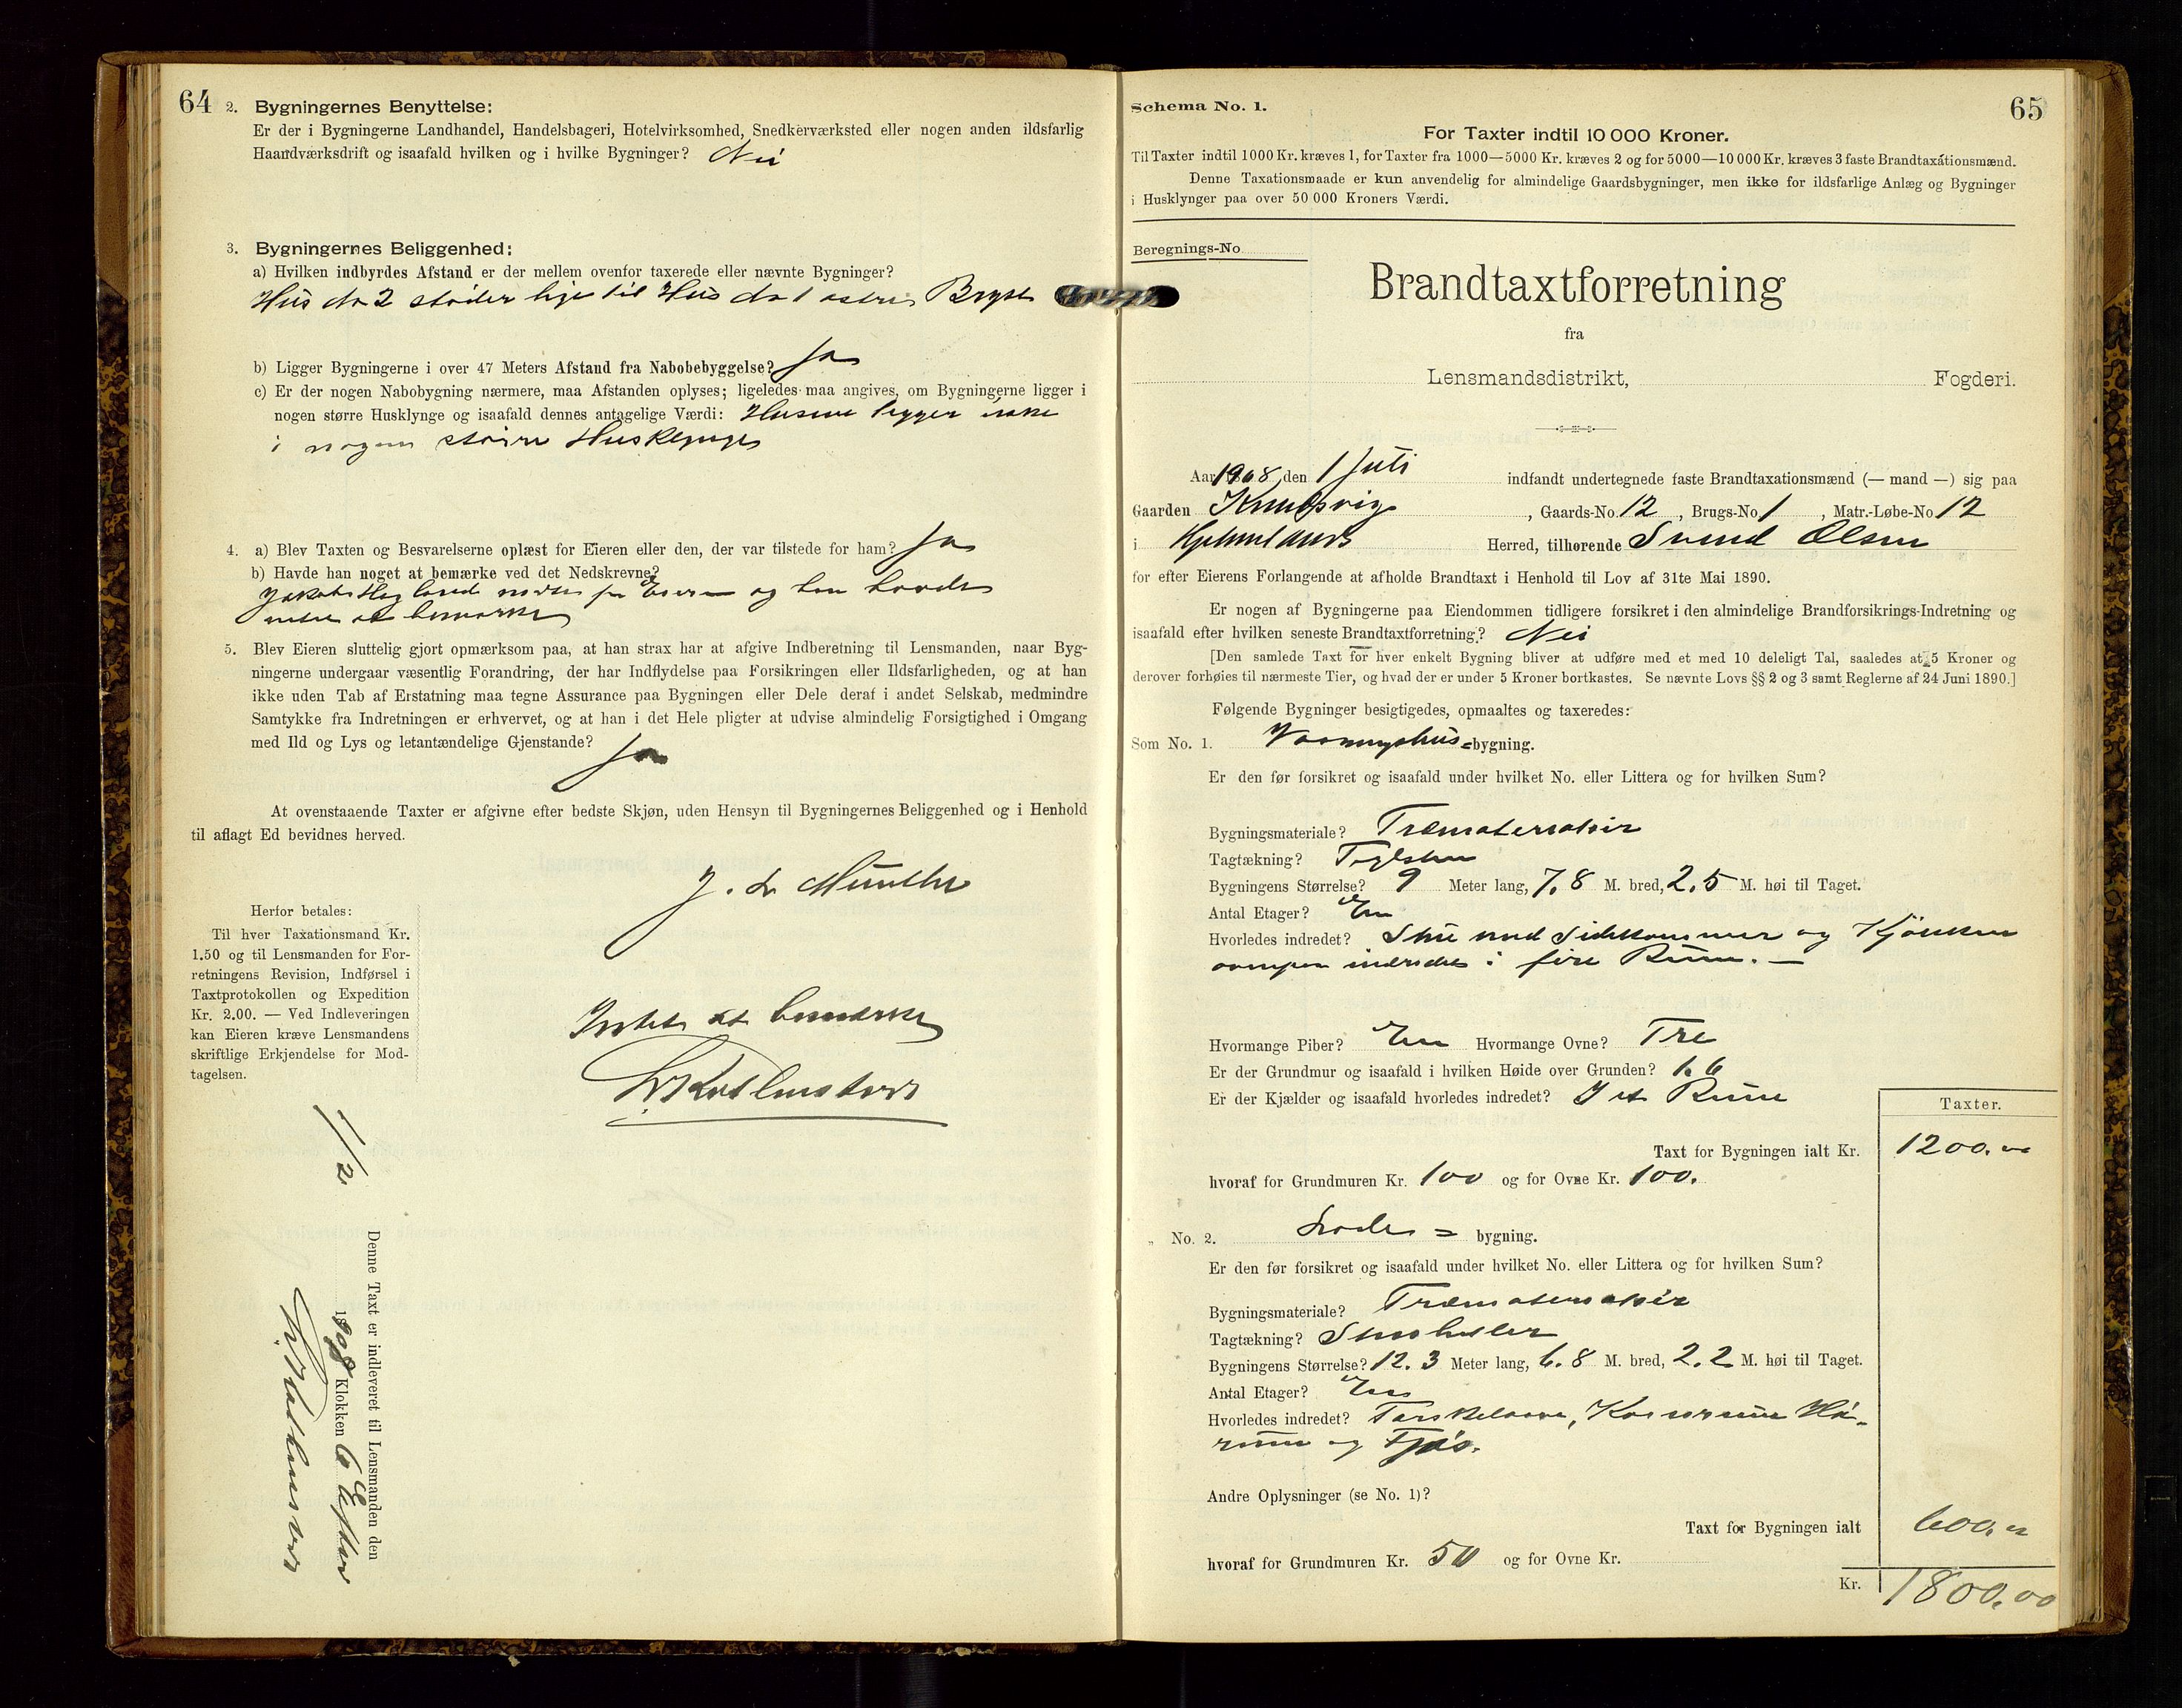 64
2. Bygningernes Benyttelse:
Er der i Bygningerne Landhandel, Handelsbageri, Hotelvirksomhed, Snedkerværksted eller nogen anden ildsfarlig
Haandværksdrift og isaafald hvilken og i hvilke Bygninger? Nei
3. Bygningernes Beliggenhed:
a) Hvilken indbyrdes Afstand er der mellem ovenfor taxerede eller nævnte Bygninger?
Hus No 2 støder lige til Hus No 1 østre Bryst
b) Ligger Bygningerne i over 47 Meters Afstand fra Nabobebyggelse? Ja
c) Er der nogen Nabobygning nærmere, maa Afstanden oplyses; ligeledes maa angives, om Bygningerne ligger i
nogen større Husklynge og isaafald dennes antagelige Værdi: Husene ligger ikke
i nogen større Husklynge
4. a) Blev Taxten og Besvarelserne oplæst for Eieren eller den, der var tilstede for ham? Ja
b) Havde han noget at bemærke ved det Nedskrevne?
Jakob mødte for Eieren og han havde
intet at bemærke
5. Blev Eieren sluttelig gjort opmærksom paa, at han strax har at afgive Indberetning til Lensmanden, naar Byg-
ningerne undergaar væsentlig Forandring, der har Indflydelse paa Forsikringen eller Ildsfarligheden, og at han
ikke uden Tab af Erstatning maa tegne Assurance paa Bygningen eller Dele deraf i andet Selskab, medmindre
Samtykke fra Indretningen er erhvervet, og at han i det Hele pligter at udvise almindelig Forsigtighed i Omgang
med Ild og Lys og letantændelige Gjenstande? Ja
At ovenstaaende Taxter er afgivne efter bedste Skjøn, uden Hensyn til Bygningernes Beliggenhed og i Henhold
til aflagt Ed bevidnes herved.
Herfor betales:
Til hver Taxationsmand Kr.
1.50 og til Lensmanden for For-
retningens Revision, Indførsel i
Taxtprotokollen og Expedition
Kr. 2.00. — Ved Indleveringen
kan Eieren kræve Lensmandens
skriftlige Erkjendelse for Mod-
tagelsen.
Intet at bemærke
Denne Taxt er indleveret til Lensmanden den
1/2 1908 Klokken 6 Efterm
65
Schema No. 1.
For Taxter indtil 10 000 Kroner.
Til Taxter indtil 1000 Kr. kræves 1, for Taxter fra 1000—5000 Kr. kræves 2 og for 5000—10 000 Kr. kræves 3 faste Brandtaxationsmænd.
Denne Taxationsmaade er kun anvendelig for almindelige Gaardsbygninger, men ikke for ildsfarlige Anlæg og Bygninger
i Husklynger paa over 50 000 Kroners Værdi.
Beregnings-No
Brandtaxtforretning
fra
Lensmandsdistrikt, Fogderi.
Aar 1908 den 1 Juli indfandt undertegnede faste Brandtaxationsmænd (— mand —) sig paa
Gaarden Knudsvig, Gaards-No. 12, Brugs-No 1, Matr.-Løbe-No 12
i Hjelmelands Herred, tilhørende Svend Olsen
for efter Eierens Forlangende at afholde Brandtaxt i Henhold til Lov af 31te Mai 1890.
Er nogen af Bygningerne paa Eiendommen tidligere forsikret i den almindelige Brandforsikrings-Indretning og
isaafald efter hvilken seneste Brandtaxtforretning? Nei
[Den samlede Taxt for hver enkelt Bygning bliver at udføre med et med 10 deleligt Tal, saaledes at 5 Kroner og
derover forhøies til nærmeste Tier, og hvad der er under 5 Kroner bortkastes. Se nævnte Lovs §§ 2 og 3 samt Reglerne af 24 Juni 1890.]
Følgende Bygninger besigtigedes, opmaaltes og taxeredes:
Som No. 1. Vaaningshus=bygning.
Er den før forsikret og isaafald under hvilket No. eller Littera og for hvilken Sum?
Bygningsmateriale? Træmaterialier
Tagtækning? Teglsten
Bygningens Størrelse? 9 Meter lang, 7.8 M. bred, 2.5 M. høi til Taget.
Antal Etager? En
Hvorledes indredet? Stue med Sidekammer og Kjøkken
ovenpaa indredes i fire Rum. —
Hvormange Piber? En Hvormange Ovne? Tre
Er der Grundmur og isaafald i hvilken Høide over Grunden? 1.6
Er der Kjælder og isaafald hvorledes indredet? I et Rum
Taxter.
Taxt for Bygningen ialt Kr. 1200.00
hvoraf for Grundmuren Kr. 100 og for Ovne Kr. 100.
„ No. 2. Lade = bygning.
Er den før forsikret og isaafald under hvilket No. eller Littera og for hvilken Sum?
Bygningsmateriale? Træmaterialier
Tagtækning? Stenheller
Bygningens Størrelse? 12.3 Meter lang, 6.8 M. bred, 2.2 M. høi til Taget.
Antal Etager? En
Hvorledes indredet? Tærskelaave, Kornrum Hø-
rum og Fjøs.
Andre Oplysninger (se No. 1)?
Taxt for Bygningen ialt 600.00
hvoraf for Grundmuren Kr. 50 og for Ovne Kr.
Kr. 1800.00